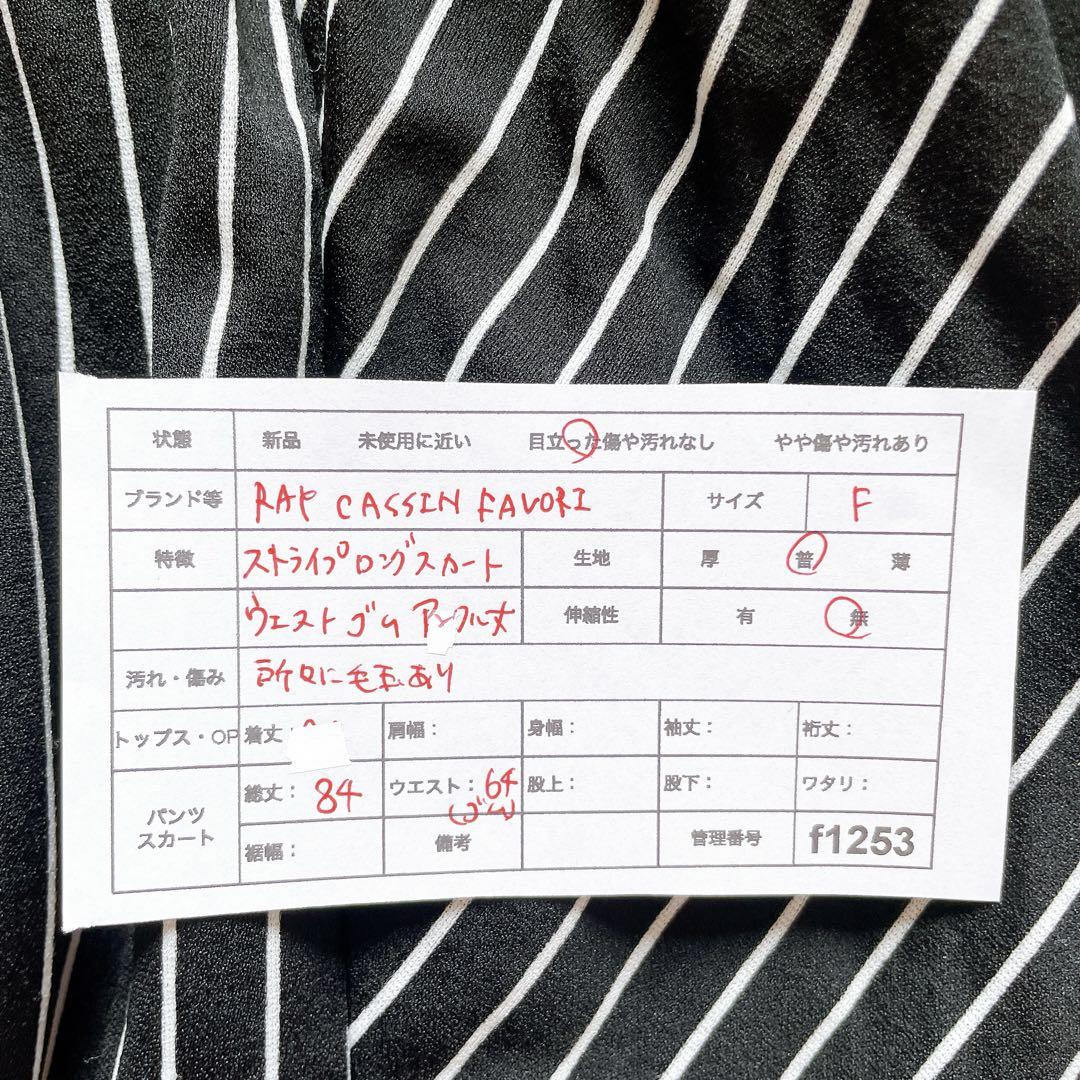 状態 新品 未使用に近い 目立った傷や汚れなし やや傷や汚れあり
ブランド等 RAP CASSIN FAVORI サイズ F
特徴 ストライプロングスカート 生地 厚 普 薄
ウエストゴム アンクル丈 伸縮性 有 無
汚れ・傷み 所々に毛玉あり
トップス・OP 着丈: 肩幅: 身幅: 袖丈: 裄丈:
パンツ スカート 総丈: 84 ウエスト: 64 (ゴム) 股上: 股下: ワタリ:
裾幅: 備考 管理番号 f1253